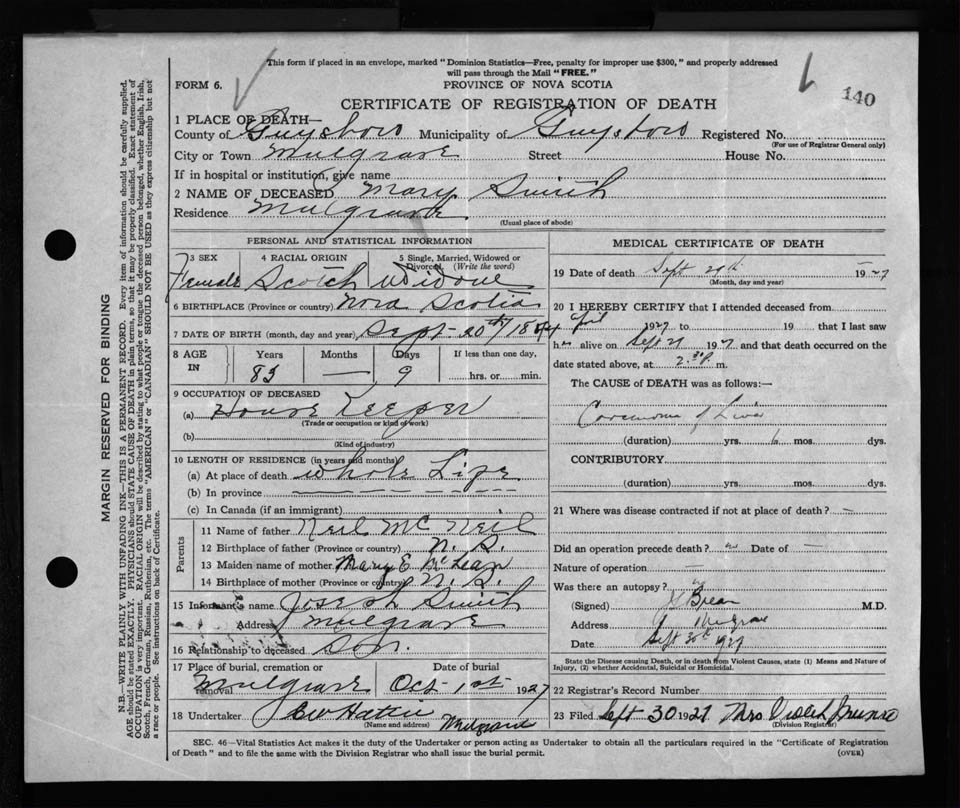 This form if placed in an envelope, marked "Dominion Statistics—Free, penalty for improper use $300," and properly addressed
will pass through the Mail "FREE."
FORM 6.
PROVINCE OF NOVA SCOTIA
140
CERTIFICATE OF REGISTRATION OF DEATH
1 PLACE OF DEATH—
County of Guysboro Municipality of Guysboro Registered No.
(For use of Registrar General only)
City or Town Mulgrave Street House No.
If in hospital or institution, give name
2 NAME OF DECEASED Mary Smith
Residence Mulgrave
(Usual place of abode)
MARGIN RESERVED FOR BINDING
N.B.—WRITE PLAINLY WITH UNFADING INK—THIS IS A PERMANENT RECORD. Every item of information should be carefully supplied.
AGE should be stated EXACTLY. PHYSICIANS should STATE CAUSE OF DEATH in plain terms, so that it may be properly classified. Exact statement of
OCCUPATION is very important. RACIAL ORIGIN will be described by stating to what people or tongue the deceased person belonged, whether English, Irish,
Scotch, French, German, Russian, Ruthenian, etc. The terms "AMERICAN" or "CANADIAN" SHOULD NOT BE USED as they express citizenship but not
a race or people. See instructions on back of Certificate.
PERSONAL AND STATISTICAL INFORMATION
3 SEX 4 RACIAL ORIGIN 5 Single, Married, Widowed or
Divorced (Write the word)
Female Scotch Widow
6 BIRTHPLACE (Province or country) Nova Scotia
7 DATE OF BIRTH (month, day and year) Sept 20th 1844
8 AGE IN Years Months Days If less than one day,
83 — 9 hrs. or min.
9 OCCUPATION OF DECEASED
(a) House Keeper
(Trade or occupation or kind of work)
(b)
(Kind of industry)
10 LENGTH OF RESIDENCE (in years and months)
(a) At place of death whole Life
(b) In province
(c) In Canada (if an immigrant)
Parents
11 Name of father Neil McNeil
12 Birthplace of father (Province or country) N. S.
13 Maiden name of mother Mary E McLean
14 Birthplace of mother (Province or country) N. S.
15 Informant's name Joseph Smith
Address Mulgrave
16 Relationship to deceased Son.
17 Place of burial, cremation or removal Date of burial
Mulgrave Oct 1st 1927
18 Undertaker
(Name and address) Mulgrave
MEDICAL CERTIFICATE OF DEATH
19 Date of death Sept 29th 1927
(Month, day and year)
20 I HEREBY CERTIFY that I attended deceased from
April 1927 to 19 that I last saw
her alive on Sept 1927 and that death occurred on the
date stated above, at 2.30 P. m.
The CAUSE of DEATH was as follows:—
Carcinoma of Liver
(duration) yrs. 6 mos. dys.
CONTRIBUTORY
(duration) yrs. mos. dys.
21 Where was disease contracted if not at place of death? —
Did an operation precede death? no Date of —
Nature of operation —
Was there an autopsy? no
(Signed) M.D.
Address Mulgrave
Date Sept 30th 1927
State the Disease causing Death, or in death from Violent Causes, state (1) Means and Nature of
Injury, (2) whether Accidental, Suicidal or Homicidal.
22 Registrar's Record Number
23 Filed Sept 30 1927 Mrs Violet
(Division Registrar)
SEC. 46—Vital Statistics Act makes it the duty of the Undertaker or person acting as Undertaker to obtain all the particulars required in the "Certificate of Registration
of Death" and to file the same with the Division Registrar who shall issue the burial permit. (OVER)